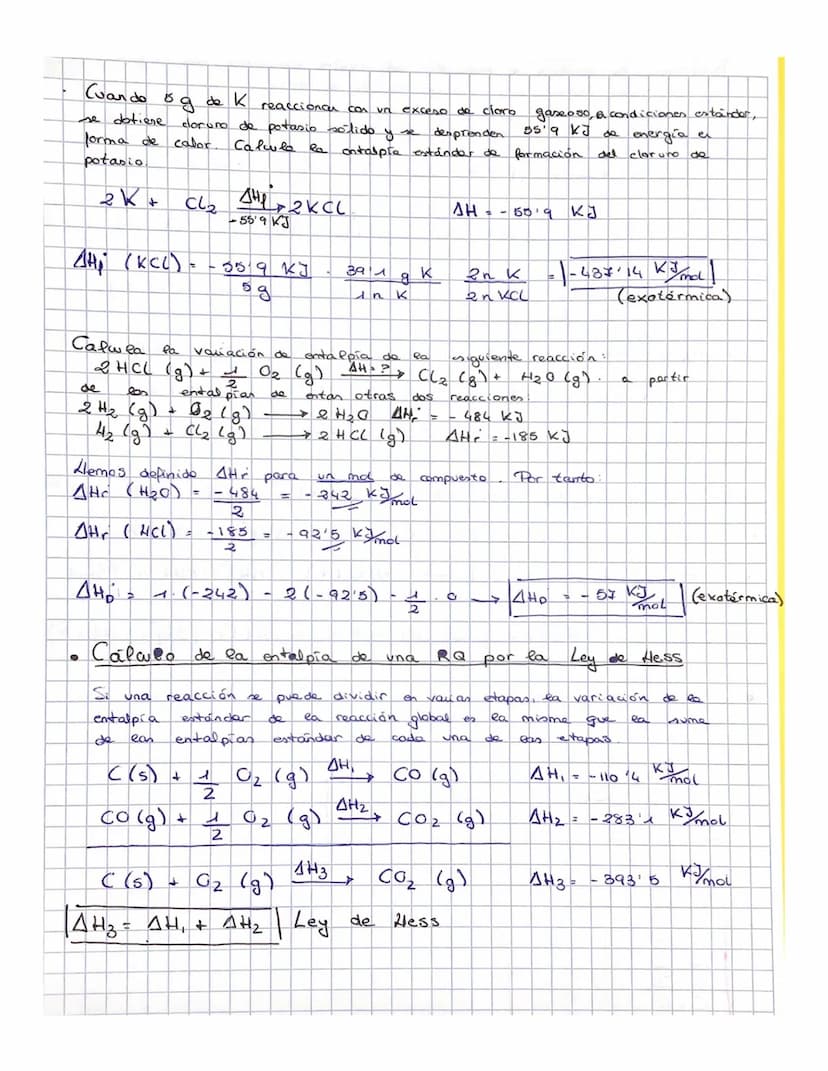 · Cuando 5 g de K reaccionan con un exceso de cloro gaseoso, a condiciones estándar,
se obtiene cloruro de potasio sólido y se desprenden 55'9 KJ de energía en
forma de calor. Calcula la entalpía estándar de formación del cloruro de
potasio.
2K + Cl2 ΔHf° → 2KCl ΔH = -55'9 KJ
-55'9 KJ
ΔHf° (KCl) = -55'9 KJ / 5 g · 39'1 g K / 1 n K 2n K / 2n KCl = -437'14 KJ/mol
(exotérmica)
Calcula la variación de entalpía de la siguiente reacción:
2 HCl (g) + 1/2 O2 (g) ΔH=? → Cl2 (g) + H2O (g). a partir
de las entalpías de estas otras dos reacciones:
2 H2 (g) + O2 (g) → 2 H2O ΔHr° = - 484 KJ
H2 (g) + Cl2 (g) → 2 HCl (g) ΔHr° = -185 KJ
Hemos definido ΔHr° para un mol de compuesto. Por tanto:
ΔHr° (H2O) = -484 / 2 = -242 KJ/mol
ΔHr° (HCl) = -185 / 2 = -92'5 KJ/mol
ΔHp° = 1·(-242) - 2(-92'5) - 1/2 · 0 → ΔHp = -57 KJ/mol (exotérmica)
• Cálculo de la entalpía de una RQ por la Ley de Hess
Si una reacción se puede dividir en varias etapas, la variación de la
entalpía estándar de la reacción global es la misma que la suma
de las entalpías estándar de cada una de las etapas.
C(s) + 1/2 O2 (g) ΔH1 → CO (g) ΔH1 = -110'4 KJ/mol
CO (g) + 1/2 O2 (g) ΔH2 → CO2 (g) ΔH2 = -283'1 KJ/mol
C (s) + O2 (g) ΔH3 → CO2 (g) ΔH3 = -393'5 KJ/mol
ΔH3 = ΔH1 + ΔH2 Ley de Hess